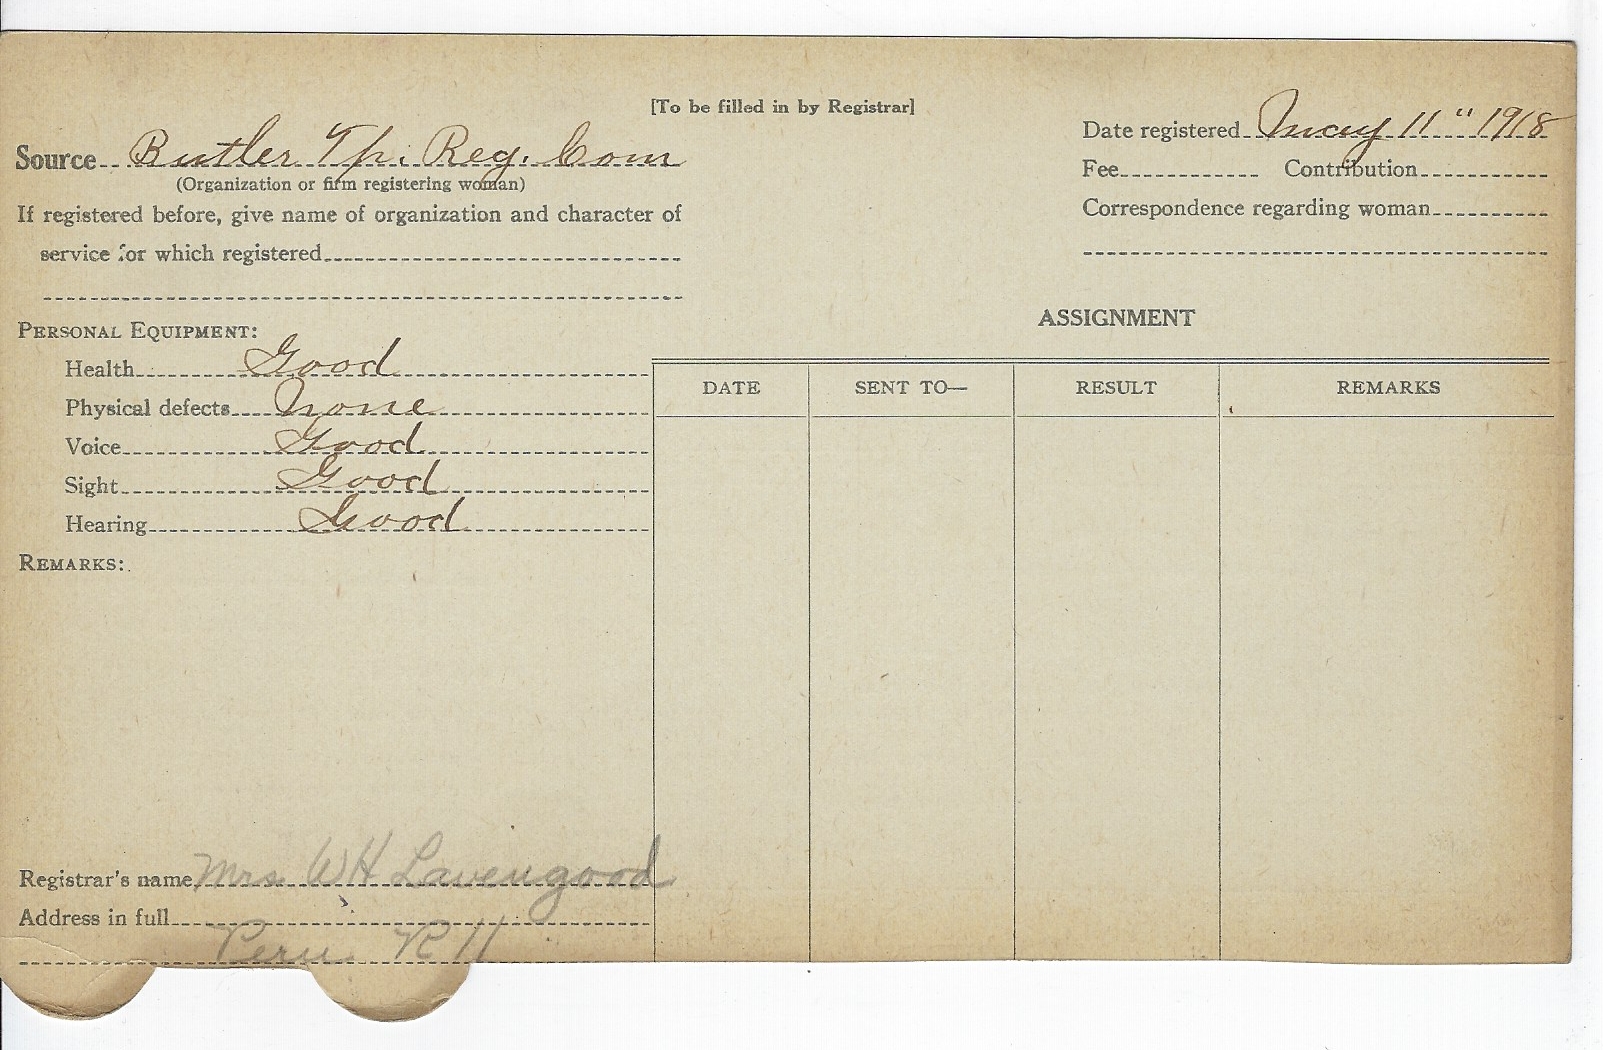 [To be filled in by Registrar]
Source Butler Tp. Reg. Com
(Organization or firm registering woman)
If registered before, give name of organization and character of
service for which registered
Date registered May 11" 1918
Fee Contribution
Correspondence regarding woman
PERSONAL EQUIPMENT:
Health Good
Physical defects None
Voice Good
Sight Good
Hearing Good
REMARKS:
ASSIGNMENT
DATE SENT TO— RESULT REMARKS
Registrar's name Mrs WH Lavengood
Address in full
Peru R 11